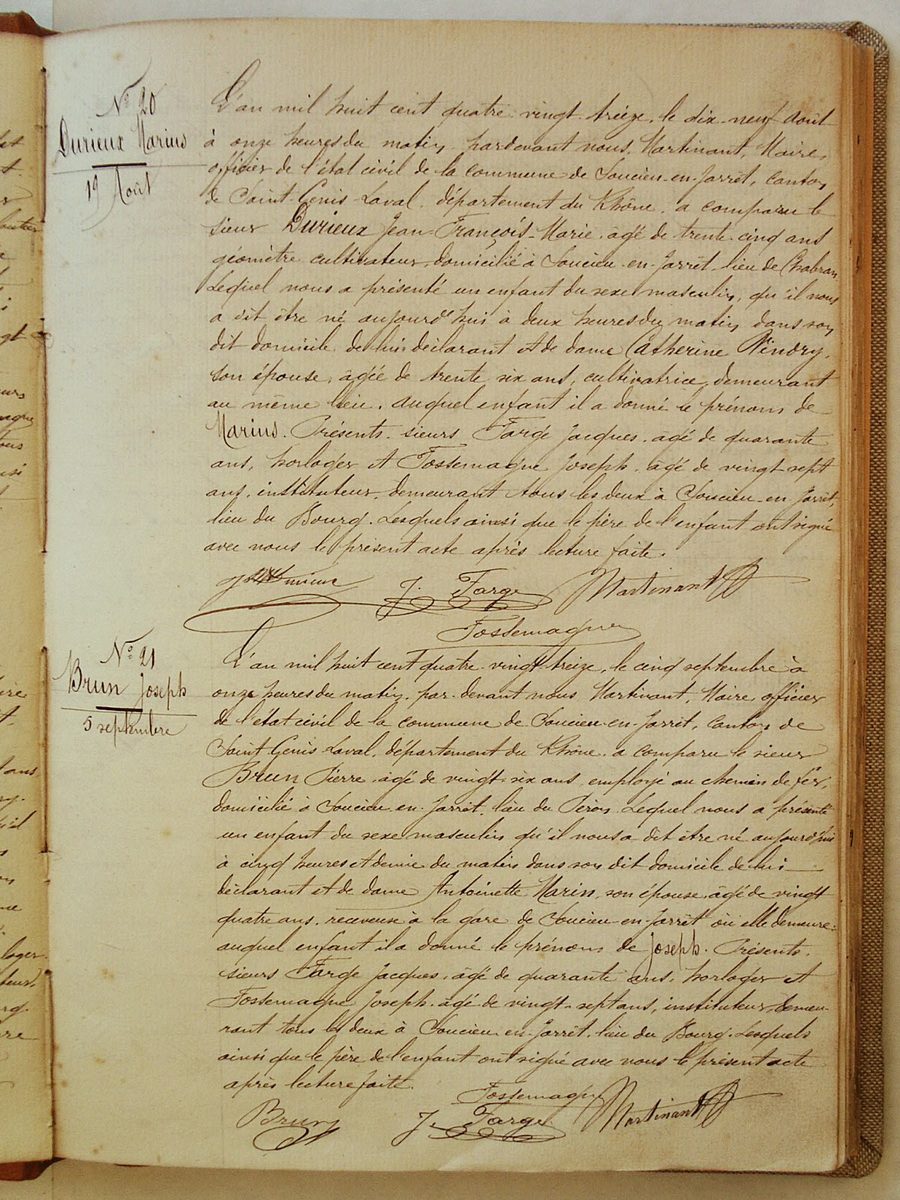 N° 20
Durieux Marius
19 Août
L'an mil huit cent quatre vingt treize, le dix-neuf Août
à onze heures du matin, pardevant nous, Martinant, Maire,
officier de l'état civil de la commune de Soucieu-en-Jarret, canton
de Saint-Genis-Laval, département du Rhône, a comparu le
sieur Durieux Jean François-Marie, âgé de trente-cinq ans
géomètre cultivateur, domicilié à Soucieu-en-Jarret, lieu de Chabran,
Lequel nous a présenté un enfant du sexe masculin, qu'il nous
a dit être né aujourd'hui à deux heures du matin, dans son
dit domicile, de lui déclarant et de dame Catherine
son épouse, âgée de trente six ans, cultivatrice, demeurant
au même lieu, auquel enfant il a donné le prénom de
Marius. Présents, sieurs Farge Jacques, âgé de quarante
ans, horloger et Fossemagne Joseph, âgé de vingt sept
ans, instituteur, demeurant tous les deux à Soucieu-en-Jarret,
lieu du Bourg. Lesquels ainsi que le père de l'enfant ont signé
avec nous le présent acte après lecture faite.
J. Farge Martinant
Fossemagne
N° 21
Brun Joseph
5 septembre
L'an mil huit cent quatre-vingt treize, le cinq septembre à
onze heures du matin, par-devant nous, Martinant, Maire officier
de l'état civil de la commune de Soucieu-en-Jarret, canton de
Saint Genis Laval, département du Rhône, a comparu le sieur
Brun Pierre, âgé de vingt-six ans, employé au chemin de fer,
domicilié à Soucieu-en-Jarret, lieu du Lequel nous a présenté
un enfant du sexe masculin qu'il nous a dit être né aujourd'hui
à cinq heures et demie du matin dans son dit domicile de lui
déclarant et de dame Antoinette Marin, son épouse, âgé de vingt
quatre ans, receveuse à la gare de Soucieu-en-Jarret où elle demeure
auquel enfant il a donné le prénom de Joseph. Présents,
sieurs Farge Jacques, âgé de quarante ans, horloger et
Fossemagne Joseph, âgé de vingt-sept ans, instituteur, demeu-
rant tous les deux à Soucieu-en-Jarret, lieu du Bourg. Lesquels
ainsi que le père de l'enfant ont signé avec nous le présent acte
après lecture faite.
Fossemagne
Brun J. Farge Martinant